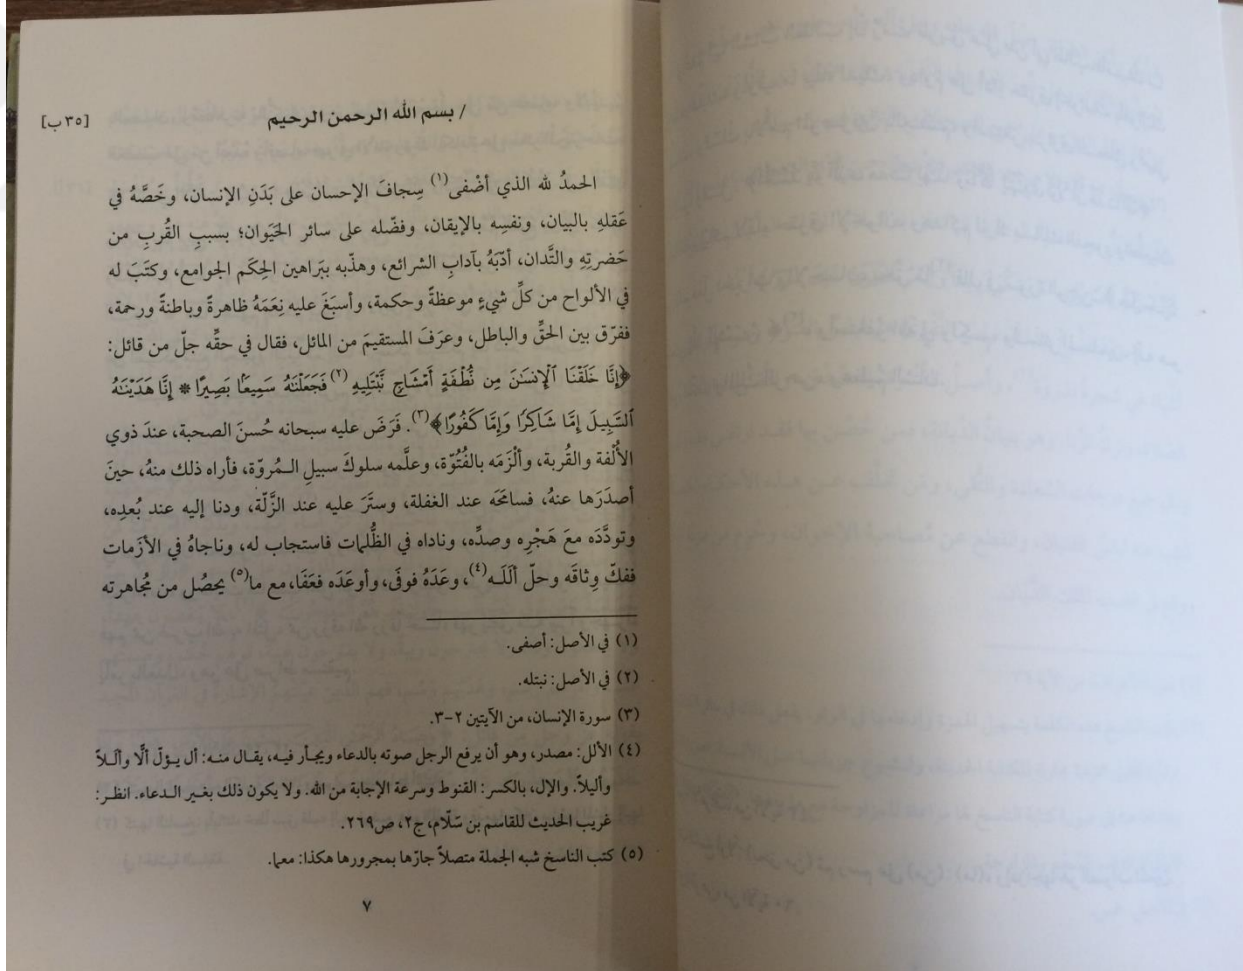 [٣٥ب] / بسم الله الرحمن الرحيم
الحمدُ لله الذي أضْفى(١) سِجافَ الإحسان على بَدَنِ الإنسان، وخَصَّهُ في
عَقلهِ بالبيان، ونفسِه بالإيقان، وفضّله على سائر الحَيَوان؛ بسببِ القُربِ من
حَضرتِهِ والتَّدان، أدّبَهُ بآدابِ الشرائع، وهذّبه ببَراهين الحِكَم الجوامع، وكتَبَ له
في الألواح من كلِّ شيءٍ موعظةً وحكمة، وأسبَغَ عليه نِعَمَهُ ظاهرةً وباطنةً ورحمة،
ففرّق بين الحقِّ والباطل، وعرَفَ المستقيمَ من المائل، فقال في حقِّه جلّ من قائل:
﴿إِنَّا خَلَقْنَا ٱلْإِنسَٰنَ مِن نُّطْفَةٍ أَمْشَاجٍ نَّبْتَلِيهِ(٢) فَجَعَلْنَٰهُ سَمِيعًۢا بَصِيرًا * إِنَّا هَدَيْنَٰهُ
ٱلسَّبِيلَ إِمَّا شَاكِرًا وَإِمَّا كَفُورًا﴾(٣). فَرَضَ عليه سبحانه حُسنَ الصحبة، عندَ ذوي
الأُلْفة والقُربة، وألْزَمَه بالفُتُوّة، وعلَّمه سلوكَ سبيلِ الـمُروّة، فأراه ذلك منهُ، حينَ
أصدَرَها عنهُ، فسامحَه عند الغفلة، وستَرَ عليه عند الزَّلّة، ودنا إليه عند بُعدِه،
وتودَّدَه معَ هَجْرِه وصدِّه، وناداه في الظُّلمات فاستجاب له، وناجاهُ في الأزَمات
ففكّ وِثاقَه وحلّ ألَلَـه(٤)، وعَدَهُ فوفَى، وأوعَدَه فعَفَا، مع ما(٥) يحصُل من مُجاهرته
(١) في الأصل: أصفى.
(٢) في الأصل: نبتله.
(٣) سورة الإنسان، من الآيتين ٢-٣.
(٤) الألل: مصدر، وهو أن يرفع الرجل صوته بالدعاء ويجأر فيه، يقال منه: أل يؤلّ ألًّا وأللاً
وأليلاً. والإل، بالكسر: القنوط وسرعة الإجابة من الله. ولا يكون ذلك بغير الدعاء. انظر:
غريب الحديث للقاسم بن سَلّام، ج٢، ص٢٦٩.
(٥) كتب الناسخ شبه الجملة متصلاً جارّها بمجرورها هكذا: معما.
٧